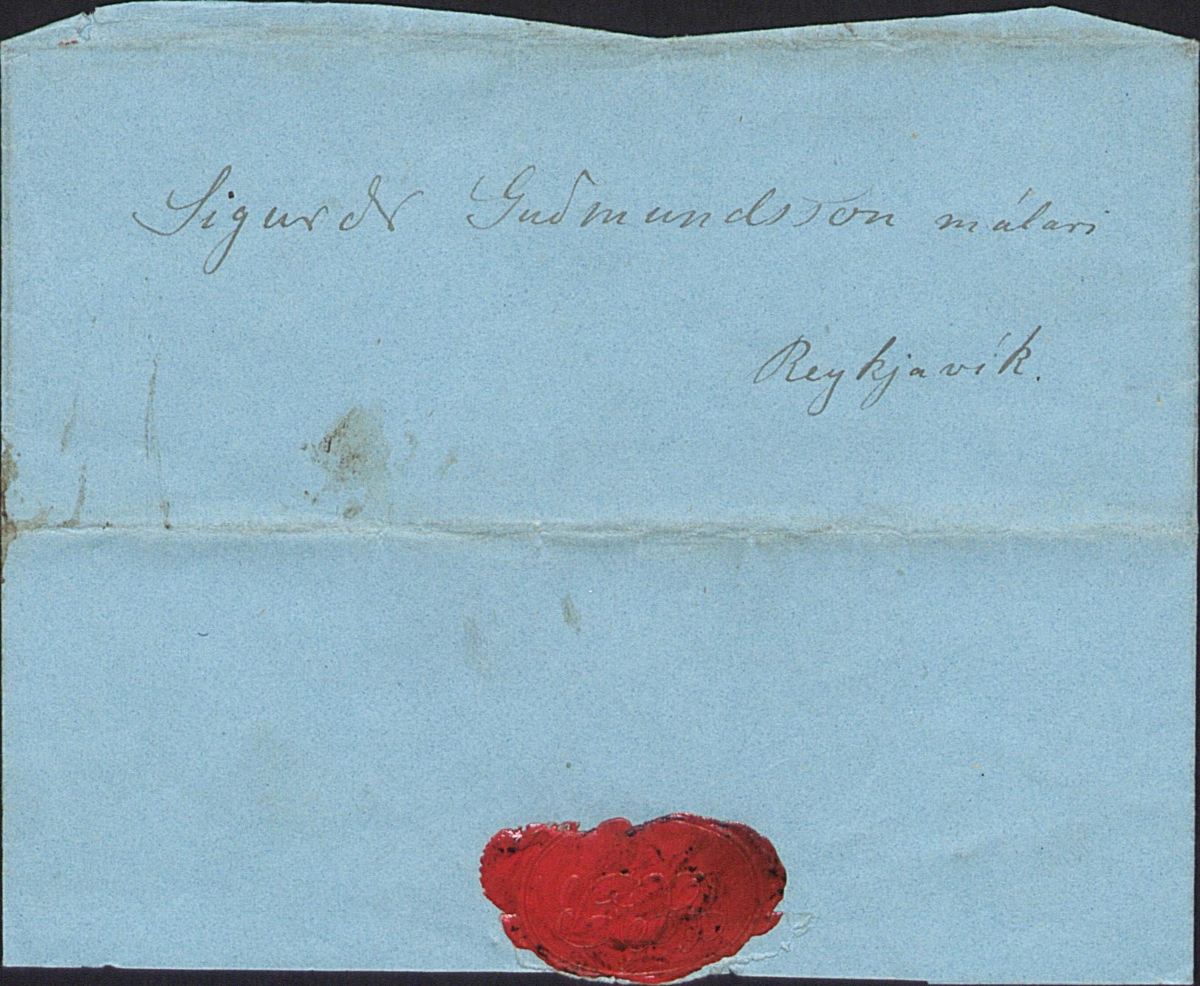 Sigurðr Guðmundsson málari
Reykjavík.